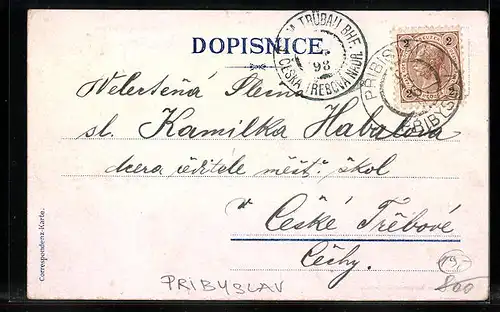 DOPISNICE.
TRÜBAU BHF
98
ČESKÁ TŘEBOVÁ NÁDR.
2 KREUZER 2
2 2
PŘIBISL
PŘIBISL
Velectěná Slečna
sl. Kamilka Habalova
dcera ředitele měšť. škol
v České Třebové
Čechy.
Correspondenz-Karte.
PRIBYSLAV
19-
800